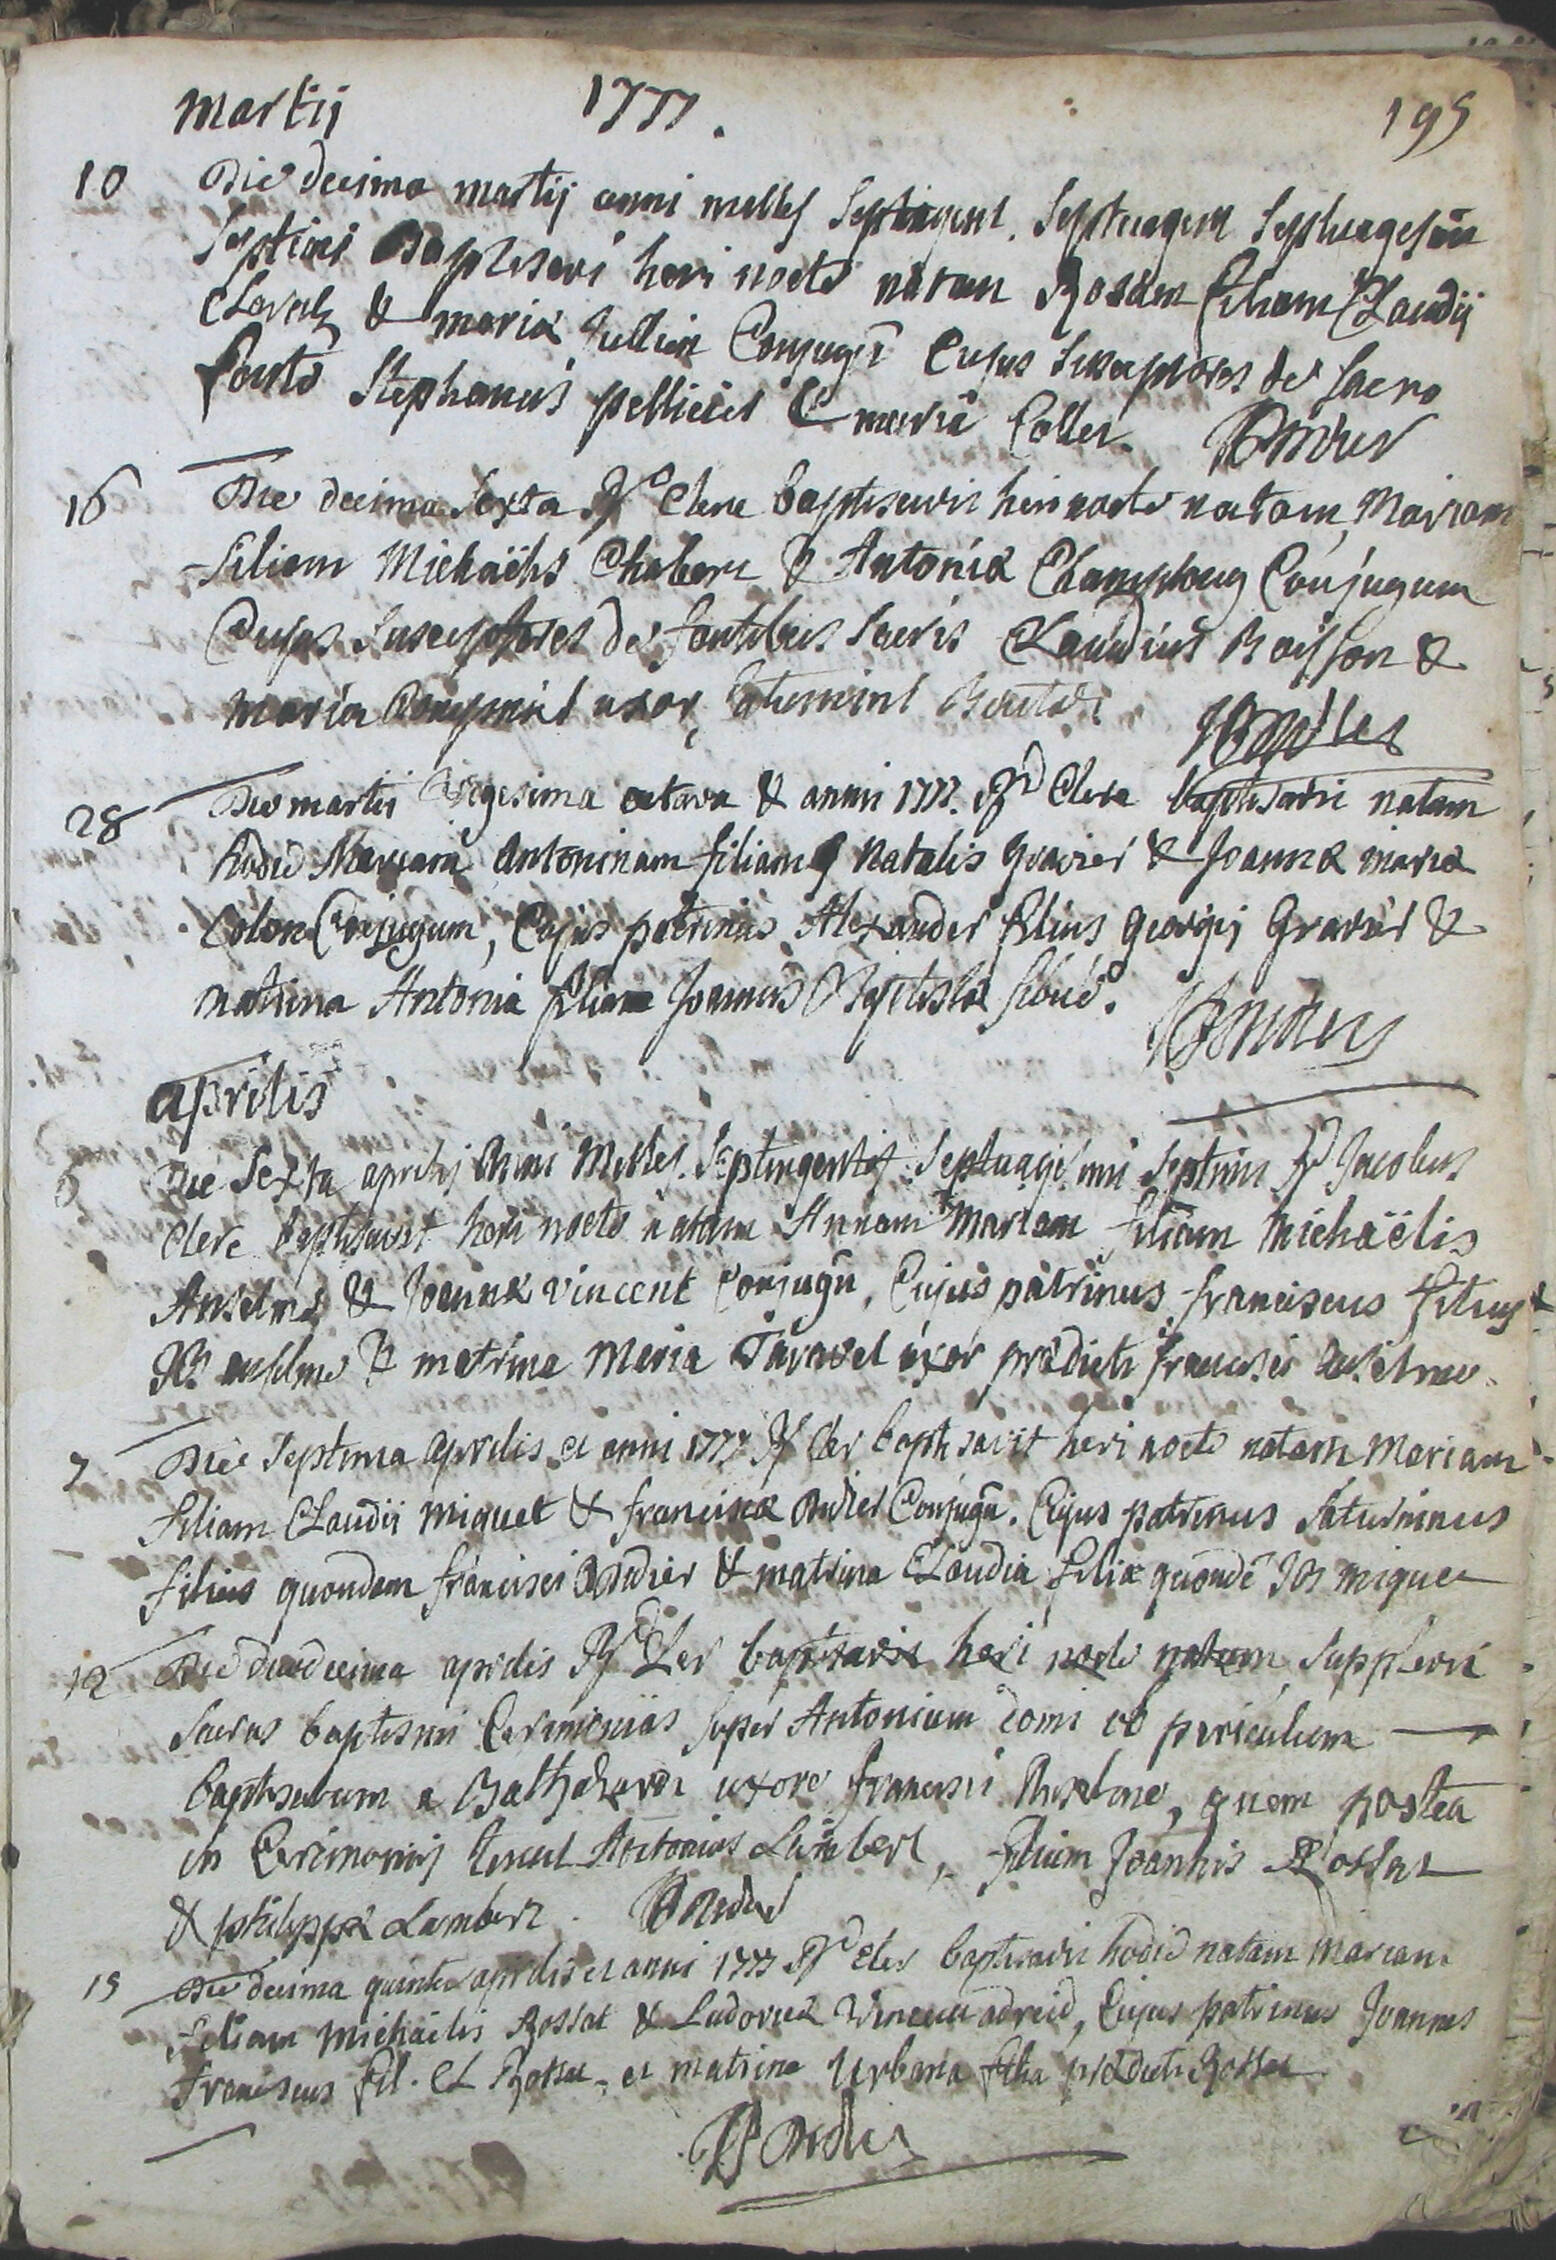 Martij 1777. 195
10 Die decima martij anni milles septingent. septuagem septuagesim
septimi Baptisavi heri nocte natam Rosam filiam Claudij
& mariæ Jullien Conjugū Cujus susceptores de sacro
fonte Stephanus pelliciet & maria Collet.
16 Die decima sexta Rd Clere baptisavit heri nocte natam Mariam
filiam Michaëlis Chabert & Antoniæ Champlong Conjugum
Cujus susceptores de fontibus sacris Claudius Boisson &
maria uxor
28 Die martii vigesima octava & anni 1777. Rd Clere baptisavi natam
hodie Mariam Antoninam filiam natalis gravier & Joannæ mariæ
Colon Conjugum, Cujus patrinus Alexander filius georgij Gravier &
matrina Antonia filia Joannis Baptistæ
aprilis
6 Die Sexta aprilis Anni Milles. Septingentis. Septuagesimi Septimi Rd Jacobus
Clere baptisavit heri nocte natam Annam Mariam filiam Michaëlis
Anselme & Joannæ vincent Conjugū, Cujus patrinus franciscus filius
JB. anselme & matrina Maria Taravel uxor prædicti francisci Anselme.
7 Die Septima aprilis et anni 1777 Rd Cler baptisavit heri nocte natam Mariam
filiam Claudij Miquet & franciscæ Didier Conjugū. Cujus patrinus Saturninus
filius quondam francisci Didier & matrina Claudia filia quondē JB miquet
12 Die duodecima aprilis Rd Cler baptisavit heri nocte natam supplevi
sacras baptismi Cerimonias super Antonium domi ob periculum
baptisatum a uxore francisci Anselme, quem postea
in Cerimoniis tenuit Antonius Lambert, filium Joannis Rossat
& philippæ Lambert.
15 Die decima quinta aprilis et anni 1777 Rd Cler baptisavit hodie natam Mariam
filiam Michaelis Rossat & Ludovicæ Vincent, Cujus patrinus Joannes
franciscus fil. Cl Rossat, et matrina Urbana filia prædicti Rossat